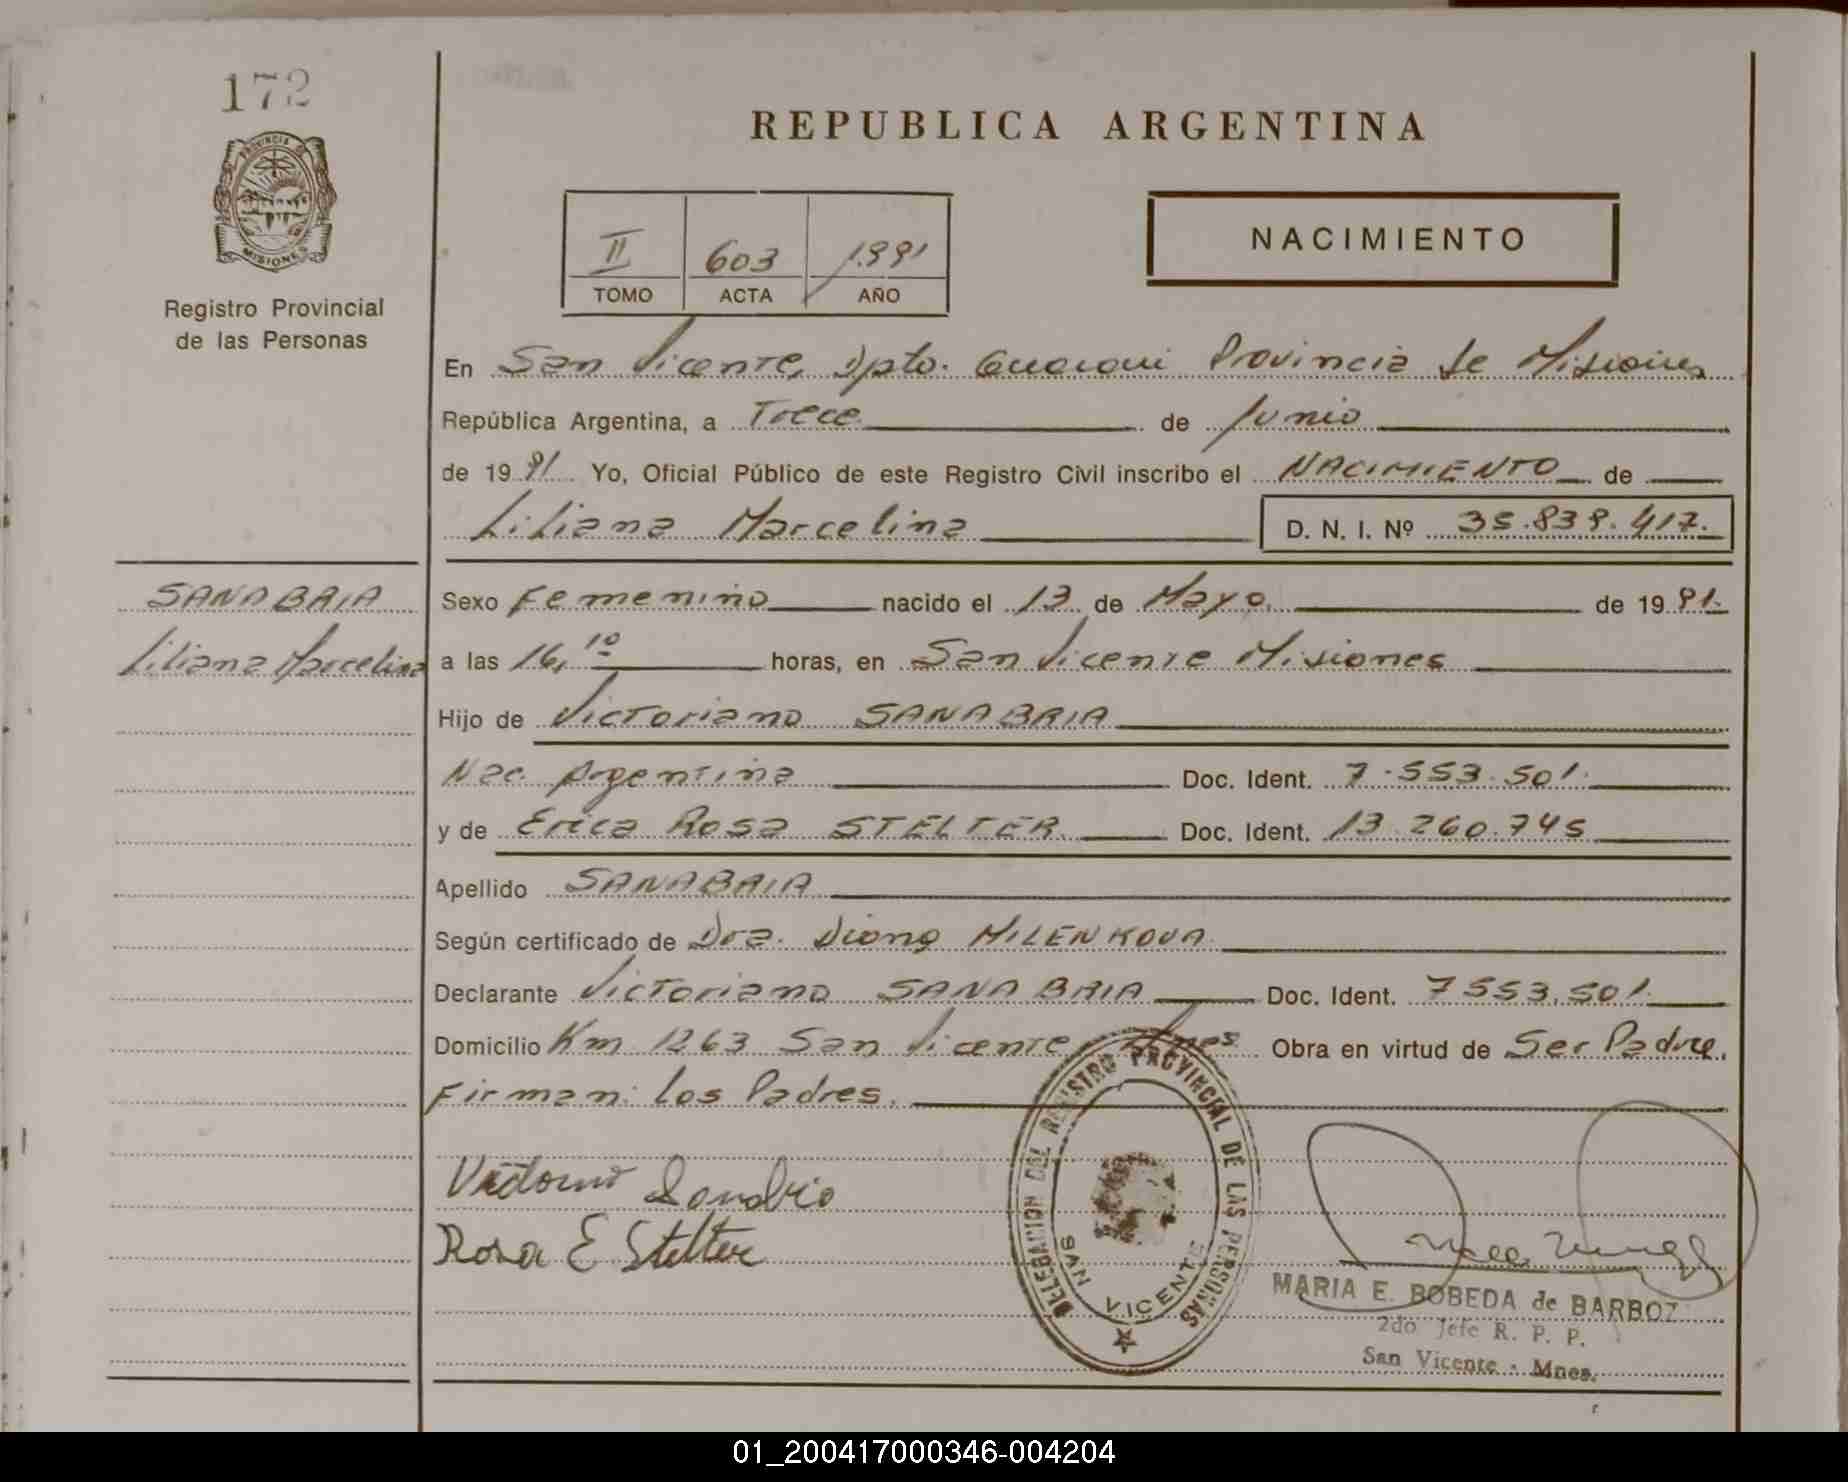 172
REPUBLICA ARGENTINA
PROVINCIA DE
MISIONES
Registro Provincial
de las Personas
II 603 1.991
TOMO ACTA AÑO
NACIMIENTO
En San Vicente, Dpto. Guaraní Provincia de Misiones
República Argentina, a Trece de Junio
de 1991 Yo, Oficial Público de este Registro Civil inscribo el NACIMIENTO de
Liliana Marcelina D. N. I. Nº 35.839.417.
SANABRIA
Liliana Marcelina
Sexo Femenino nacido el 13 de Mayo de 1991.
a las 16,10 horas, en San Vicente Misiones
Hijo de Victoriano SANABRIA
Nac. Argentina Doc. Ident. 7.553.501.
y de Erica Rosa STELTER Doc. Ident. 13.260.745
Apellido SANABRIA
Según certificado de Dra. Diana MILENKOVA
Declarante Victoriano SANABRIA Doc. Ident. 7553.501.
Domicilio Km 1263 San Vicente, Mnes Obra en virtud de Ser Padre.
Firman: los Padres.
Sanabria
Rosa E Stelter
DELEGACION DEL REGISTRO PROVINCIAL DE LAS PERSONAS
SAN VICENTE
MARIA E. BOBEDA de BARBOZ
2do Jefe R. P. P.
San Vicente - Mnes.
01_200417000346-004204